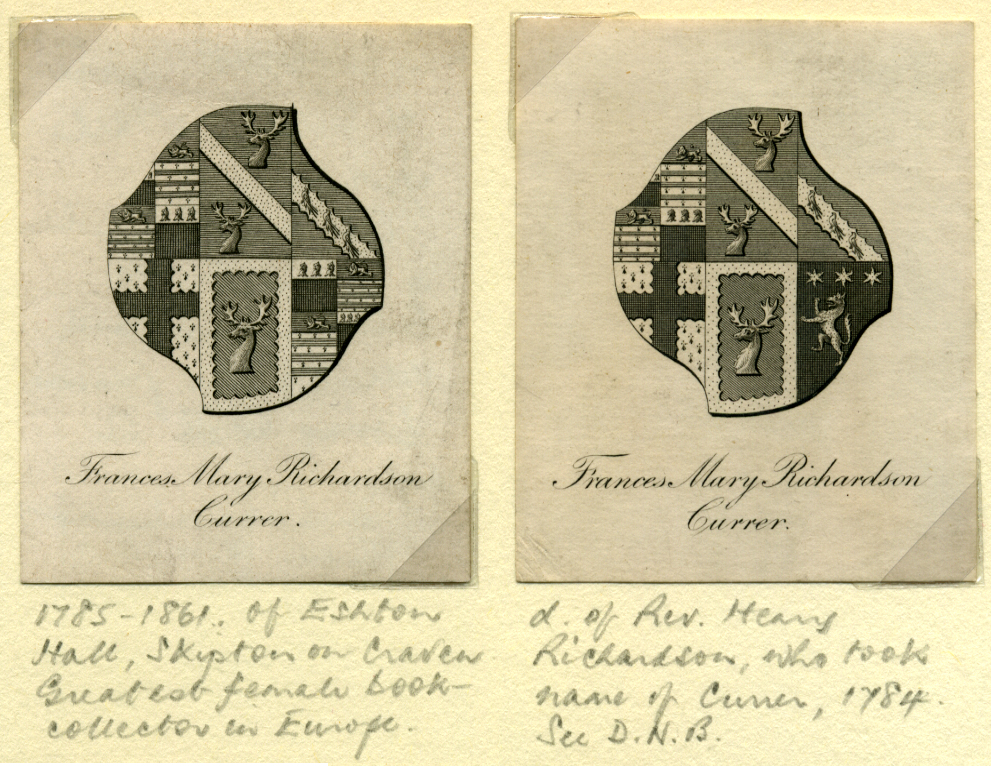 Frances Mary Richardson
Currer.
1785-1861. of Eshton
Hall, Skipton on Craven
Greatest female book-
collector in Europe.
Frances Mary Richardson
Currer.
d. of Rev. Henry
Richardson, who took
name of Currer, 1784.
See D.N.B.